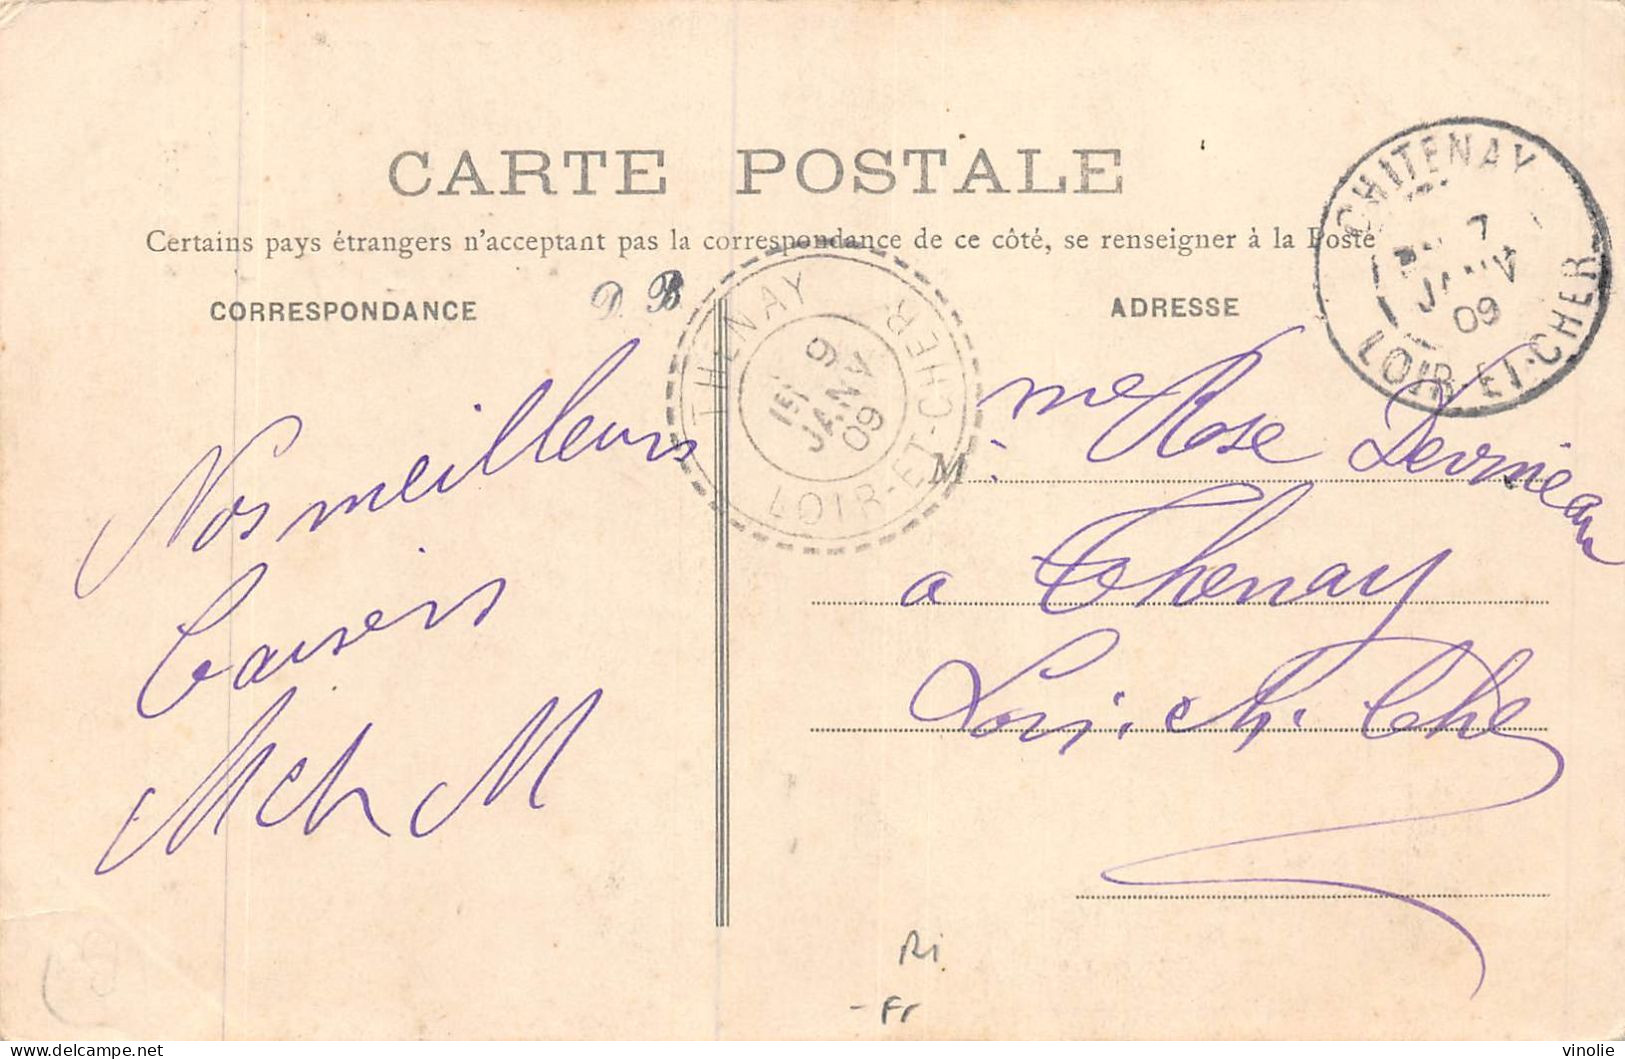 CARTE POSTALE
Certains pays étrangers n'acceptant pas la correspondance de ce côté, se renseigner à la Poste
CORRESPONDANCE
D. B
ADRESSE
CHITENAY
7
JANV
09
LOIR-ET-CHER
THENAY
9
JANV
09
LOIR-ET-CHER
Nos meilleurs
baisers
M et M
M
me Rose
a Thenay
Loir et Cher
Fr
vinolie